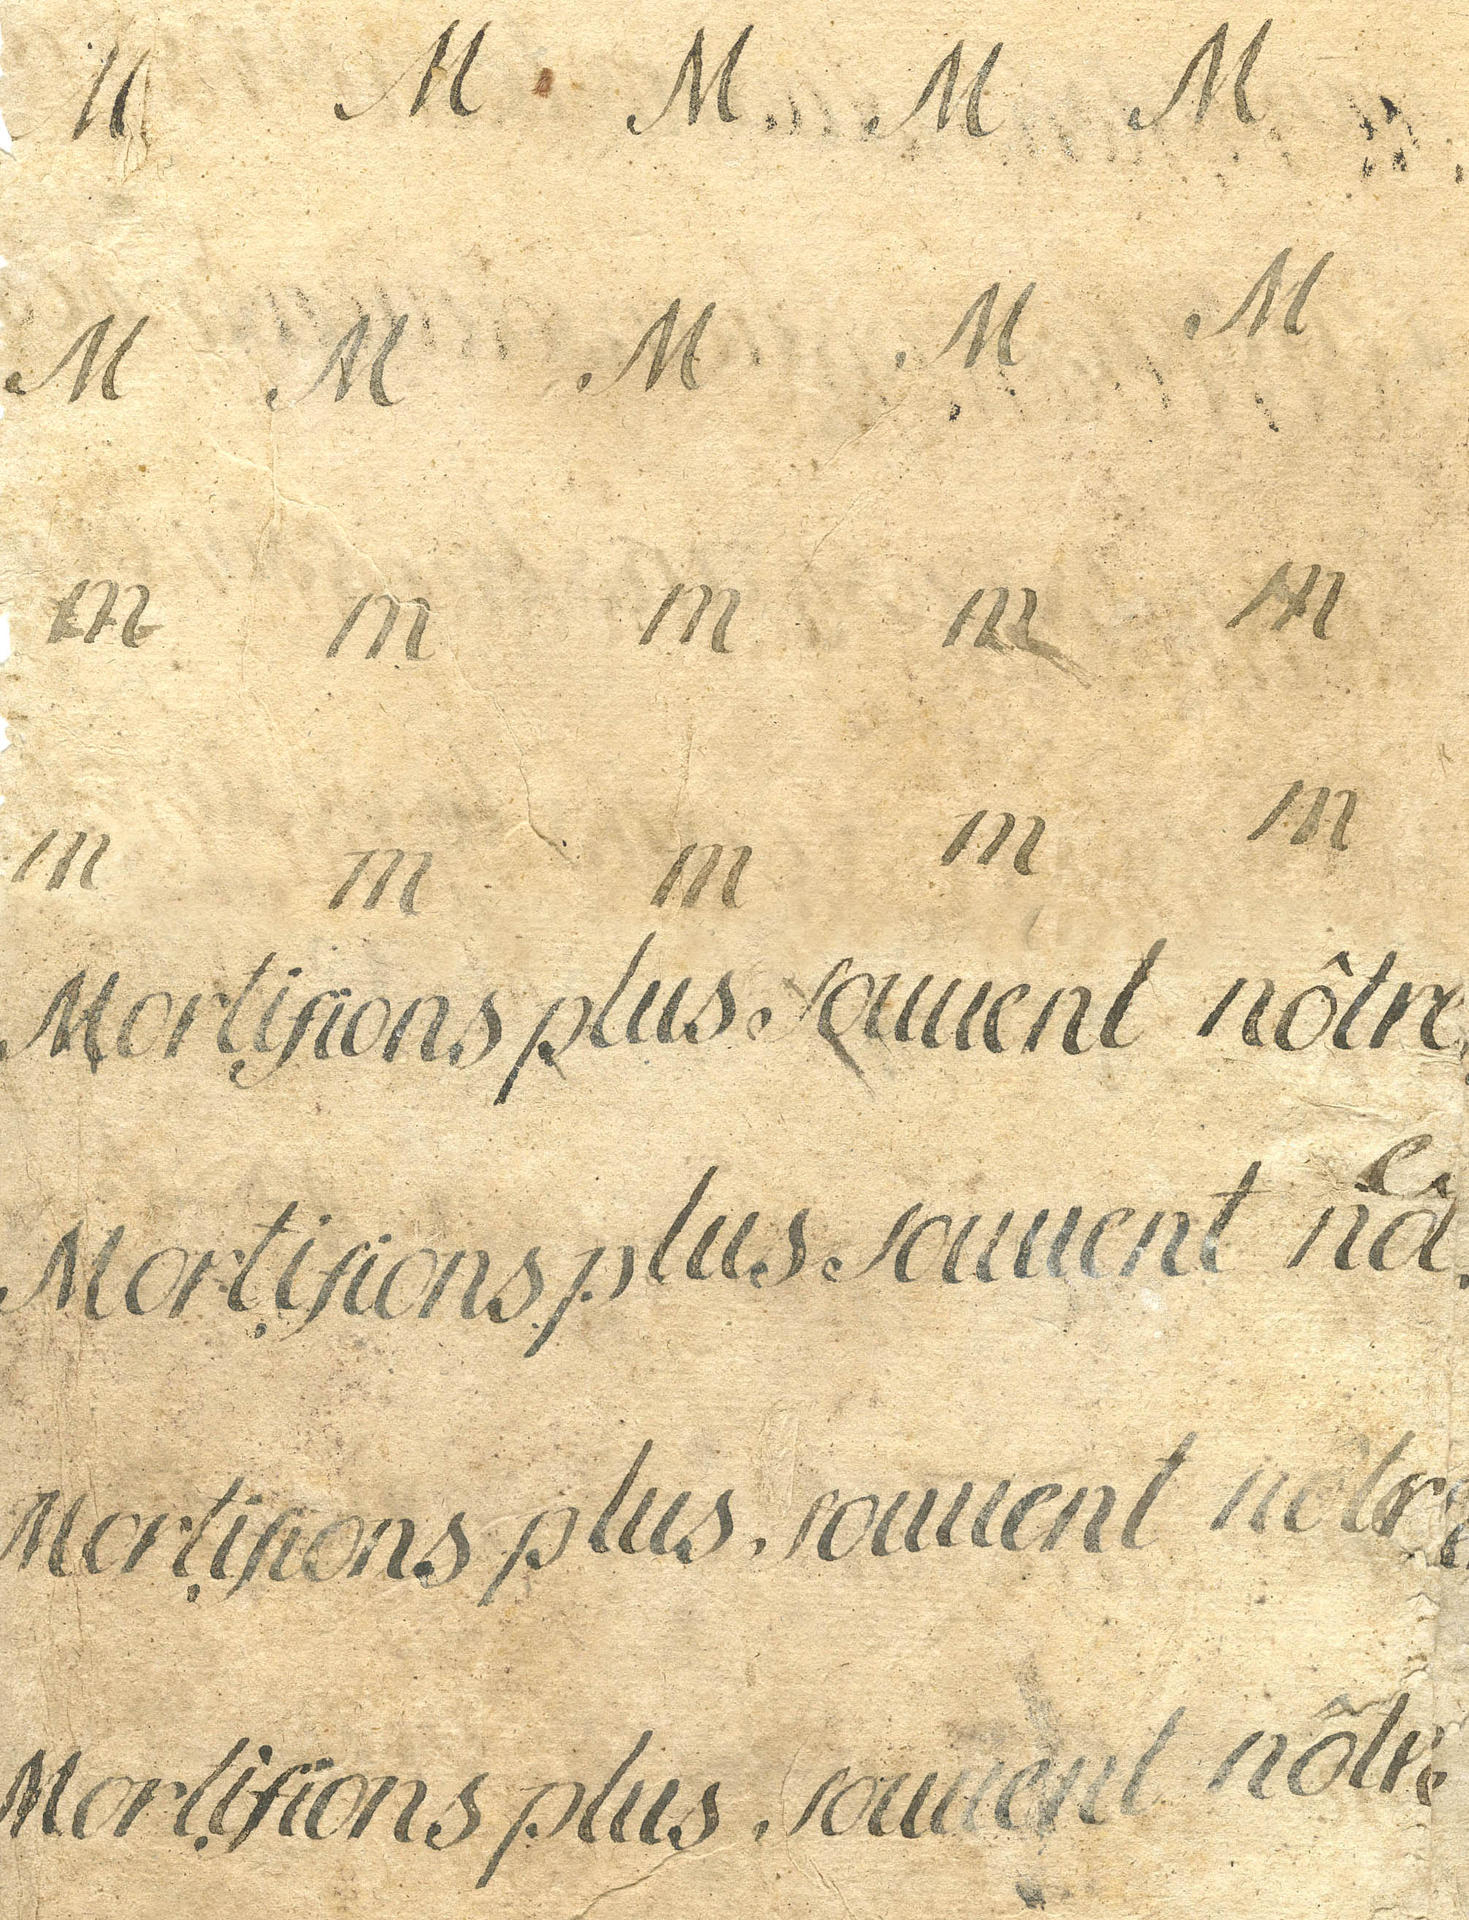 M M M M M
M M M M M
m m m m m
m m m m m
Mortifions plus souuent nôtre
e
Mortifions plus souuent nô
Mortifions plus souuent nôtre
Mortifions plus souuent nôtre